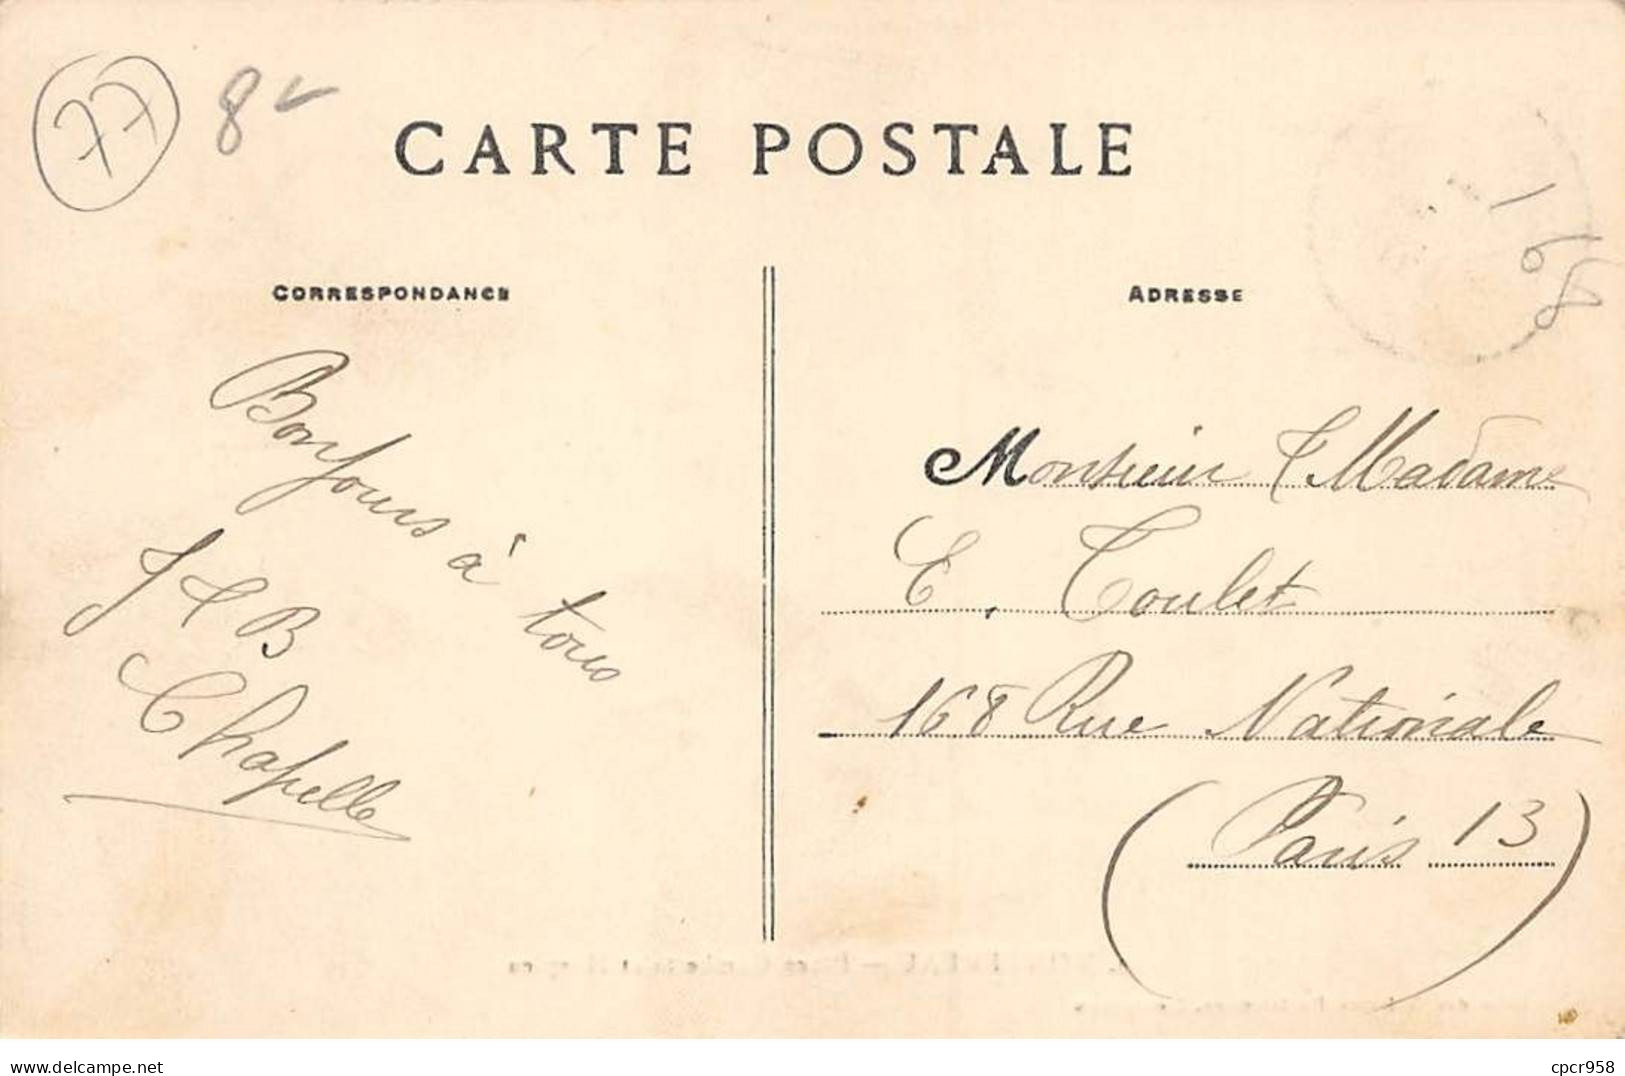 77 8
CARTE POSTALE
168
CORRESPONDANCE
Bonjours à tous
J & B
Chapelle
ADRESSE
Monsieur & Madame
E. Toulet
168 Rue Nationale
(Paris 13)
www.delcampe.net
cpcr958